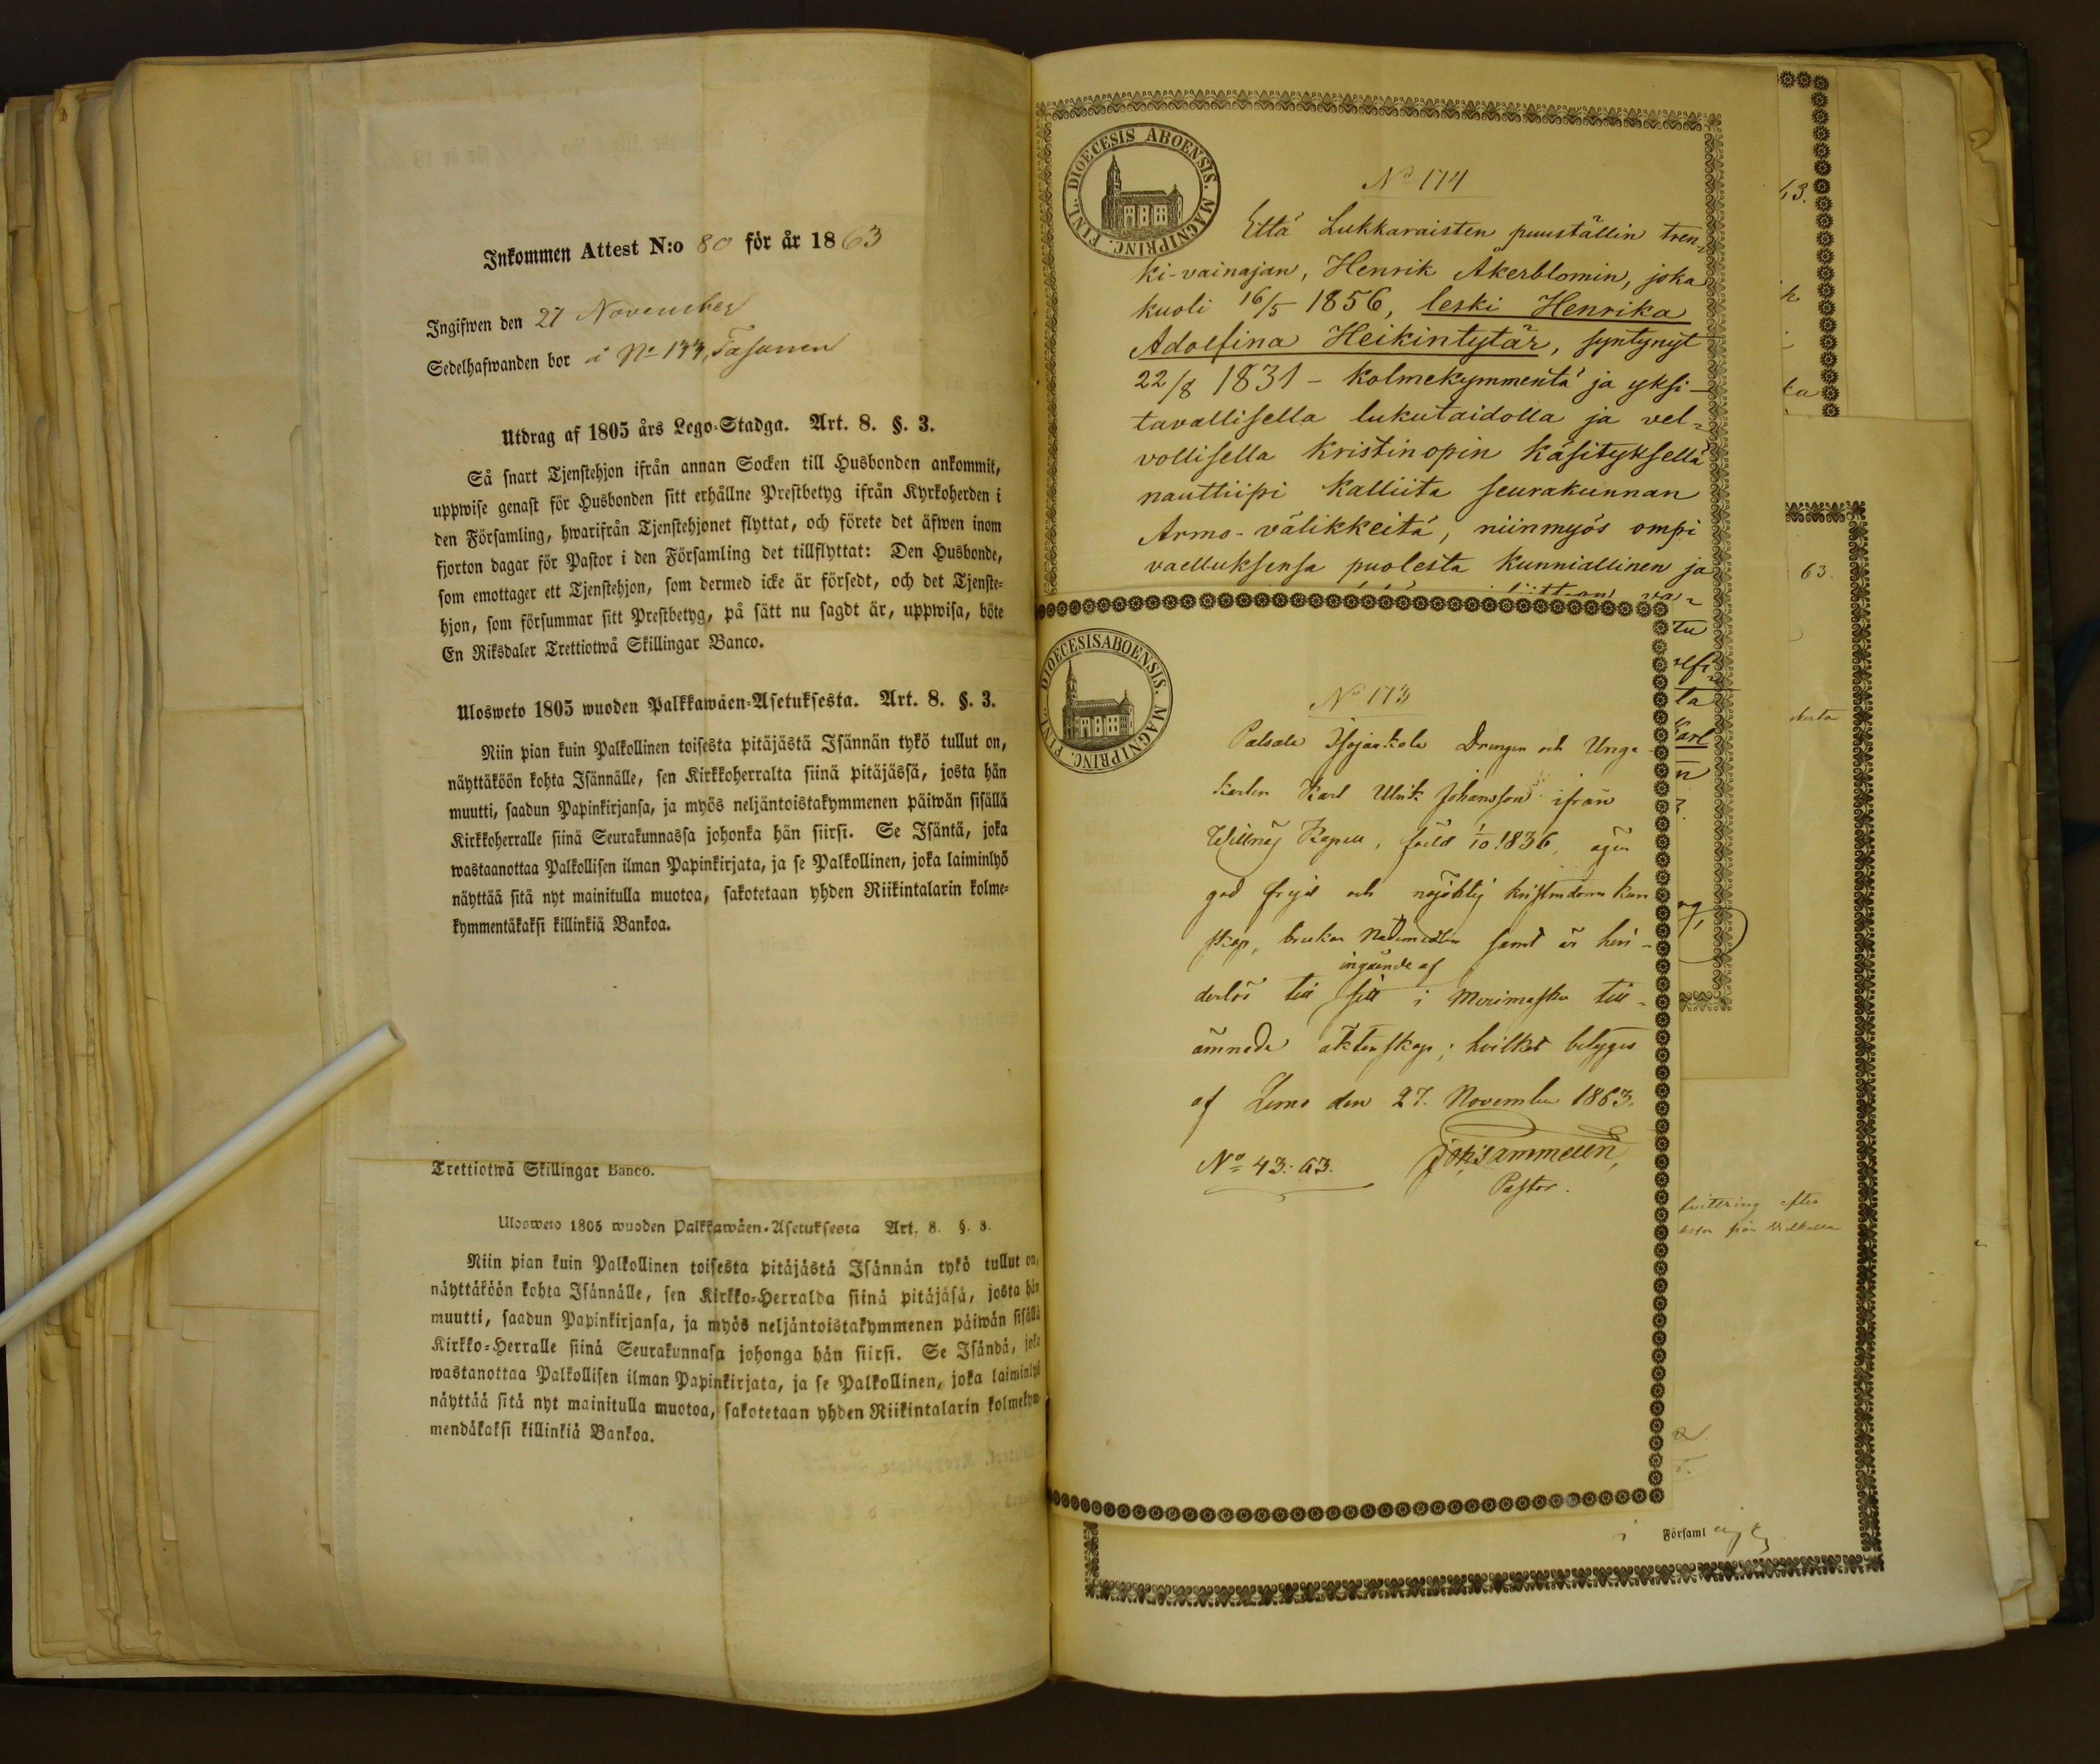 Inkommen Attest N:o 80 för år 1863
Ingifwen den 27 November
Sedelhafwanden bor i No 133,
Utdrag af 1805 års Lego-Stadga. Art. 8. §. 3.
Så snart Tjenstehjon ifrån annan Socken till Husbonden ankommit,
uppwise genast för Husbonden sitt erhållne Prestbetyg ifrån Kyrkoherden i
den Församling, hwarifrån Tjenstehjonet flyttat, och förete det äfwen inom
fjorton dagar för Pastor i den Församling det tillflyttat: Den Husbonde,
som emottager ett Tjenstehjon, som dermed icke är försedt, och det Tjenste-
hjon, som försummar sitt Prestbetyg, på sätt nu sagdt är, uppwisa, böte
En Riksdaler Trettiotwå Skillingar Banco.
Ulosweto 1805 wuoden Palkkawäen-Asetuksesta. Art. 8. §. 3.
Niin pian kuin Palkollinen toisesta pitäjästä Isännän tykö tullut on,
näyttäköön kohta Isännälle, sen Kirkkoherralta siinä pitäjässä, josta hän
muutti, saadun Papinkirjansa, ja myös neljäntoistakymmenen päiwän sisällä
Kirkkoherralle siinä Seurakunnassa johonka hän siirsi. Se Isäntä, joka
wastaanottaa Palkollisen ilman Papinkirjata, ja se Palkollinen, joka laiminlyö
näyttää sitä nyt mainitulla muotoa, sakotetaan yhden Riikintalarin kolme-
kymmentäkaksi killinkiä Bankoa.
Trettiotwå Skillingar Banco.
Ulosweto 1805 wuoden Palkkawäen-Asetuksesta Art. 8. §. 3.
Niin pian kuin Palkollinen toisesta pitäjästä Isännän tykö tullut on,
näyttäköön kohta Isännälle, sen Kirkko-Herralda siinä pitäjäsä, josta hän
muutti, saadun Papinkirjansa, ja myös neljäntoistakymmenen päiwän sisällä
Kirkko-Herralle siinä Seurakunnasa johonga hän siirsi. Se Isändä, joka
wastanottaa Palkollisen ilman Papinkirjata, ja se Palkollinen, joka laiminlyö
näyttää sitä nyt mainitulla muotoa, sakotetaan yhden Riikintalarin kolmekym-
mendäkaksi killinkiä Bankoa.
DIOECESIS ABOENSIS. MAGNI PRINC. FINL.
No 174
Että Lukkaraisten puuställin tren-
ki-vainajan, Henrik Åkerblomin, joka
kuoli 16/5 1856, leski Henrika
Adolfina Heikintytär, syntynyt
22/8 1831 - kolmekymmentä ja yksi -
tavallisella lukutaidolla ja vel-
vollisella kristinopin käsityksellä
nauttiipi kalliita seurakunnan
Armo-välikkeitä, niinmyös ompi
vaelluksensa puolesta kunniallinen ja
DIOECESIS ABOENSIS. MAGNI PRINC. FINL.
No 173
Isojaakola Drengen och Unga
karlen Karl Ulrik Johansson ifrån
Willnäs Kapell, född 1/10 1836, äger
god frejd och nöjaktig kristendoms kun
skap, brukar Nådemedlen samt är hin-
derlös till ingående af sitt i Merimasku till-
ämnade äktenskap; hvilket betygas
af Lemo den 27. November 1863.
No 43: 63.
Pastor.
63.
tu
ta
Karl
63.
Församl